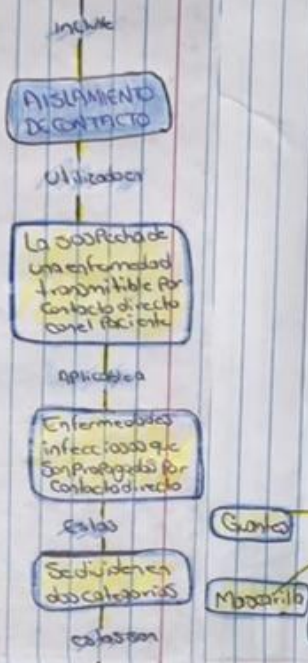 incluye
AISLAMIENTO
DE CONTACTO
Utilizado en
La sospecha de
una enfermedad
transmitible por
contacto directo
con el paciente
Aplicable a
Enfermedades
infecciosas que
son propagadas por
contacto directo
Estas
Se dividen en
dos categorias
estas son
Guantes
Mascarilla